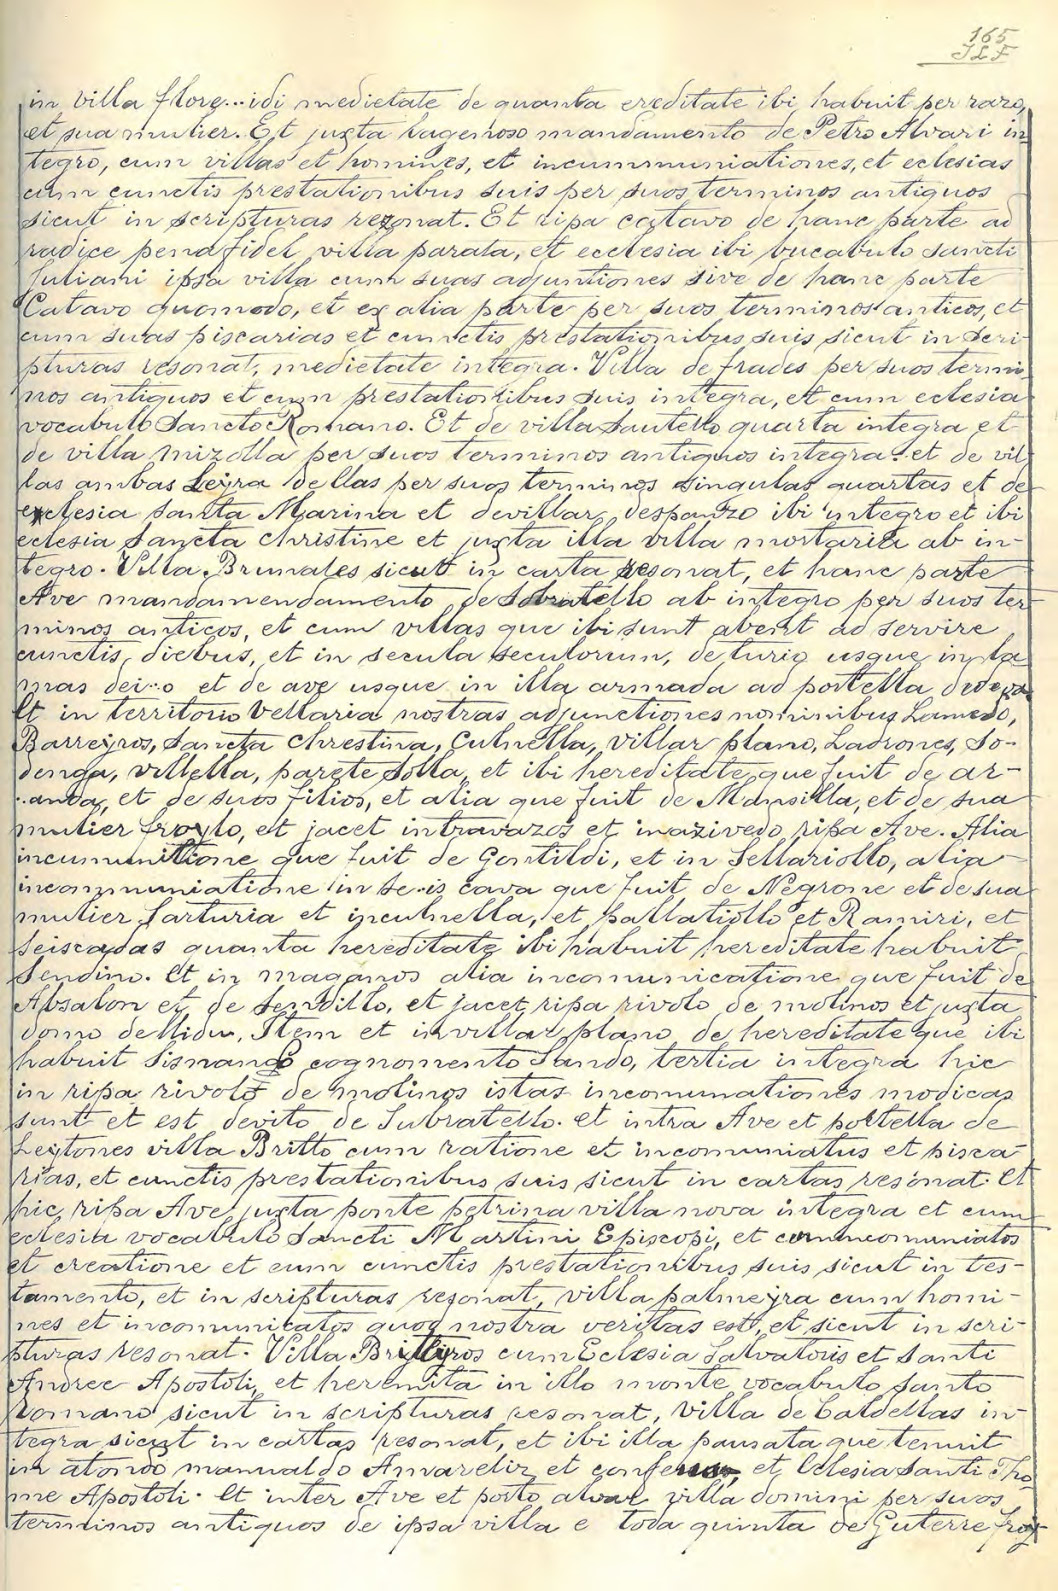 165
in villa flore...idi medietate de quanta ereditate ibi habuit per raro,
et sua mulier. Et juxta bagenoso mandamento de Petro Alvari in
tegro, cum villas et homines, et incummuniationes, et eclesias
cum cunctis prestationibus suis per suos terminos antiquos
sicut in scripturas rezonat. Et ripa de hanc parte ad
radice penafidel villa parata, et ecclesia ibi bucabulo Sancti
Juliani ipsa villa cum suas adjuntiones sive de hanc parte
Catavo quomodo, et ex alia parte per suos terminos anticos, et
cum suas piscarias et cunctis prestationibus suis sicut in scri-
pturas resonat, medietate integra. Villa de frades per suos termi
nos antiquos et cum prestationibus suis integra, et cum eclesia
vocabulo Sancto Romano. Et de villa Sautello quarta integra et
de villa mizolla per suos terminos antiquos integra. et de vil
las ambas Leyra dellas per suos terminos singulas quartas et de
eclesia Santa Marina et de villar despanzo ibi integro et ibi
eclesia Sancta Christine et juxta illa villa mortaria ab in-
tegro. Villa Brunales sicut in carta resonat, et hanc parte
Ave mandamendamento de Sobratello ab integro per suos ter
minos anticos, et cum villas que ibi sunt abent ad servire
cunctis diebus, et in secula seculorum, de turio usque in la
mas dei..o et de ave usque in illa armada ad portella
Et in territorio Vellaria nostras adjunctiones nominibus Lamedo,
Barreyros, Sancta Chrestina, Culnella, villar plano, Ladrones, So-
denga, villella, parete Solla, et ibi hereditate que fuit de ar-
..anta, et de suos filios, et alia que fuit de Mansilla, et de sua
mulier froylo, et jacet intravazos et inazivedo ripa Ave. Alia
incumunitione que fuit de Gontildi, et in Sellariollo, alia
incommuniatione in se..is cava que fuit de Negrone et de sua
mulier Sarturia et inculnella, et pallatiollo et Ramiri, et
seiscadas quanta hereditate ibi habuit hereditate habuit
Sendino. Et in maganos alia incomunicatione que fuit de
Absalon et de Sendillo, et jacet ripa rivolo de molinos et juxta
domo de Item et in villar plano de hereditate que ibi
habuit Sisnando cognomento Sando, tertia integra hic
in ripa rivolo de molinos istas incomunationes modicas
sunt et est devito de Subratello. et intra Ave et portella de
Leytones villa Britto cum ratione et incomuniatus et pisca-
rias, et cunctis prestationibus suis sicut in cartas resonat. Et
hic ripa Ave juxta ponte petrina villa nova integra et cum
eclesia vocabulo Sancti Martini Episcopi, et cumincomuniatos
et creatione et cum cunctis prestationibus suis sicut in tes-
tamento, et in scripturas resonat, villa palmeyra cum homi-
nes et incomunicatos quoq nostra veritas est, et sicut in scri-
pturas resonat. Villa cum Eclesia Salvatoris et Santi
Andree Apostoli, et heremita in illo monte vocabulo Santo
Romano sicut in scripturas resonat, villa de Caldellas in-
tegra sicut in cartas resonat, et ibi illa pausata que tenuit
in atondo manualdo et et Eclesia Santi Tho
me Apostoli. Et inter Ave et porto villa domini per suos
terminos antiquos de ipsa villa e toda quinta de Guterre